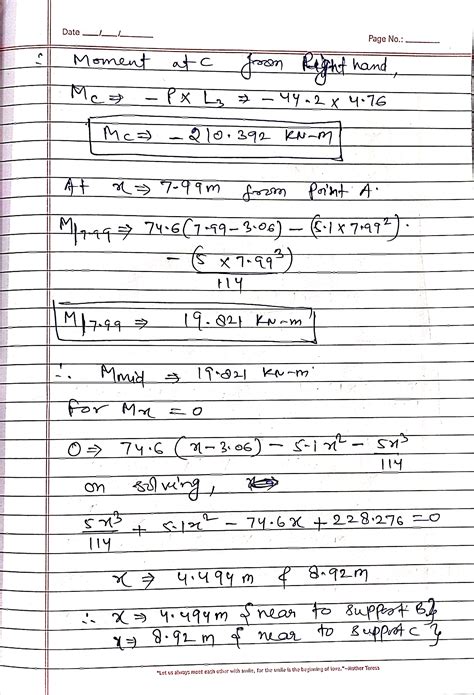 Date __/__/__
Page No.: ______
∴ Moment at C from Right hand,
Mc ⇒ - P x L3 ⇒ - 44.2 x 4.76
Mc ⇒ - 210.392 KN-m
At x ⇒ 7.99m from point A.
M|7.99 ⇒ 74.6 (7.99 - 3.06) - (5.1 x 7.99²).
- (5 x 7.99³)
114
M|7.99 ⇒ 19.821 KN-m
∴ Mmid ⇒ 19.821 KN-m
For Mx = 0
0 ⇒ 74.6 (x - 3.06) - 5.1 x² - 5x³
114
on solving,
5x³ + 5.1x² - 74.6x + 228.276 = 0
114
x ⇒ 4.494 m & 8.92 m
∴ x ⇒ 4.494 m { near to support B }
x ⇒ 8.92 m { near to support C }
"Let us always meet each other with smile, for the smile is the beginning of love."-Mother Teresa